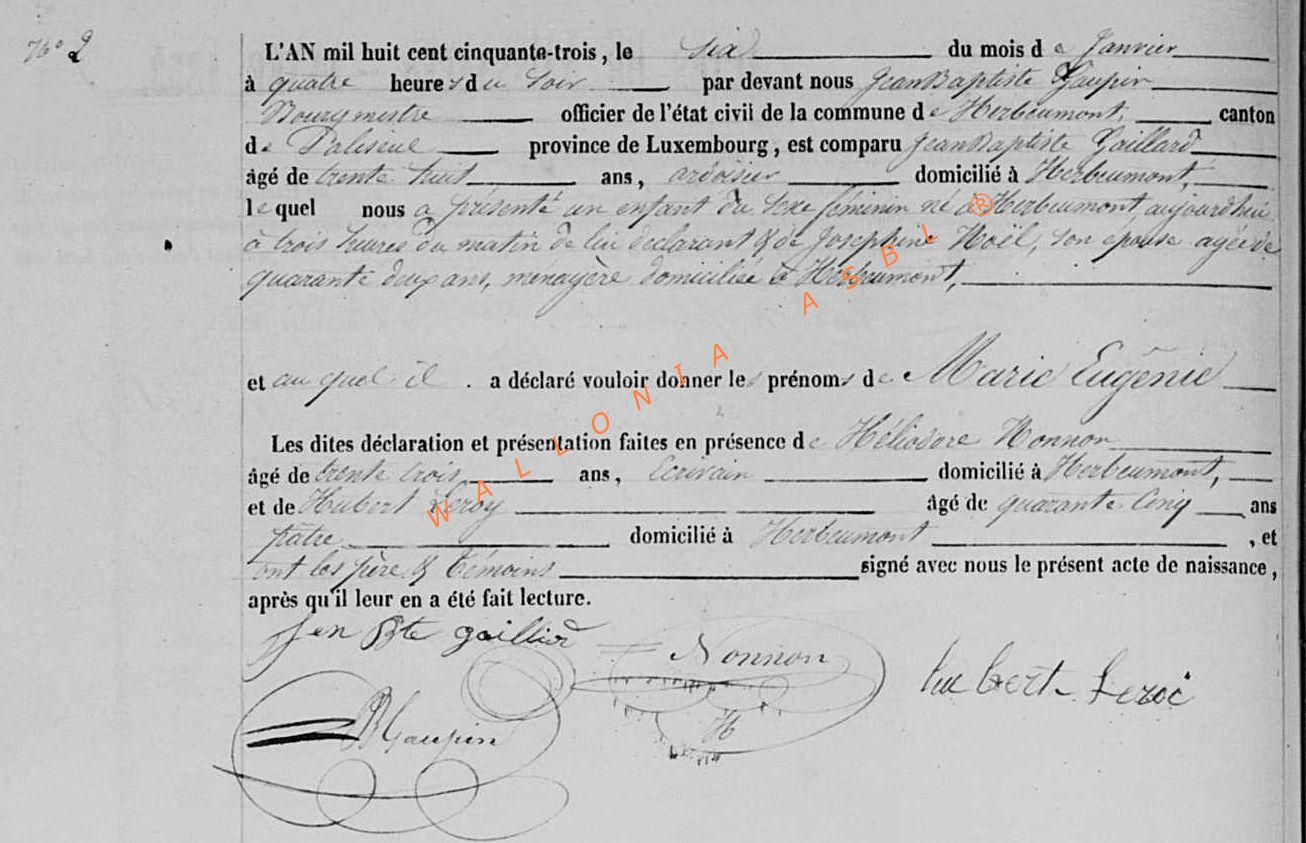 N° 2
L'AN mil huit cent cinquante-trois, le six du mois de Janvier
à quatre heures du soir par devant nous Jean Baptiste Gaupin
Bourgmestre officier de l'état civil de la commune de Herbeumont, canton
de Paliseul province de Luxembourg, est comparu Jean Baptiste Gaillard
âgé de trente huit ans, ardoisier domicilié à Herbeumont,
lequel nous a présenté un enfant du sexe féminin né à Herbeumont, aujourdhui
à trois heures du matin de lui déclarant & de Josephine Noël, son epouse agée de
quarante deux ans, menagère domiciliée à Herbeumont,
et au quel il a déclaré vouloir donner les prénoms de Marie Eugénie
Les dites déclaration et présentation faites en présence de Héliodore Nonnon
âgé de trente trois ans, Ecrivain domicilié à Herbeumont,
et de Hubert Leroy âgé de quarante cinq ans
pâtre domicilié à Herbeumont, et
ont les père & témoins signé avec nous le présent acte de naissance,
après qu'il leur en a été fait lecture.
Jen Bte gaillard
Nonnon
H
hubert Leroi
JB Gaupin
WALLONIA ASBL ®